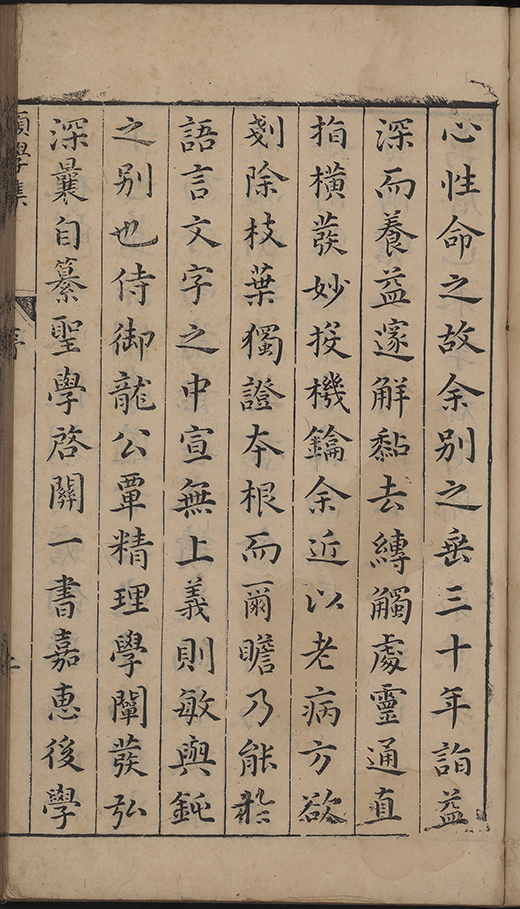 心性命之故余别之垂三十年詣益
深而養益邃解黏去縛觸處靈通直
指橫發妙掞機鑰余近以老病方欲
剗除枝葉獨證本根而爾瞻乃能於
語言文字之中宣無上義則敏與鈍
之别也侍御龍公覃精理學闡發弘
深曩自纂聖學啓關一書嘉惠後學
願學集
序